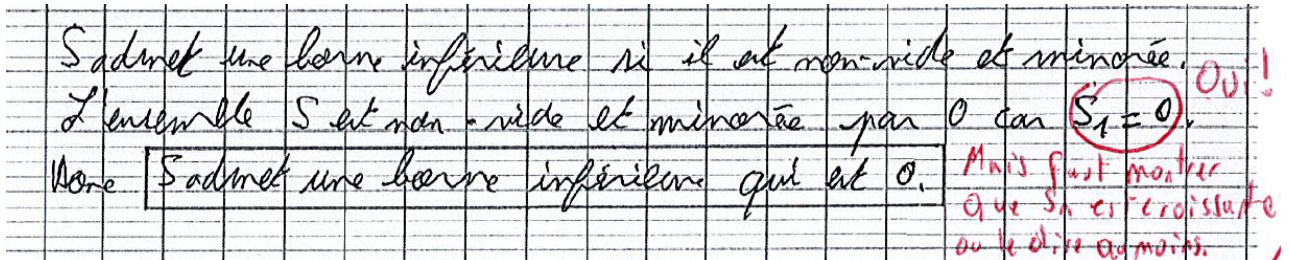 S admet une borne inférieure si il est non-vide et minorée.
Oui!
L'ensemble S est non-vide et minorée par 0 car S₁ = 0.
Donc S admet une borne inférieure qui est 0.
Mais faut montrer
que Sn est croissante
ou le dire au moins.